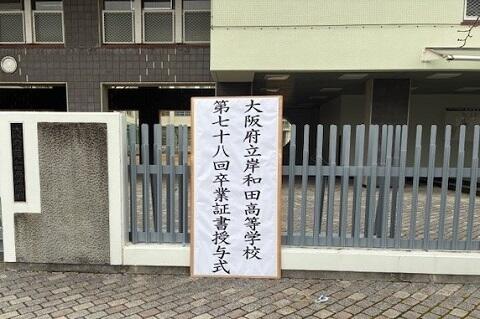 大阪府立岸和田高等学校
第七十八回卒業証書授与式